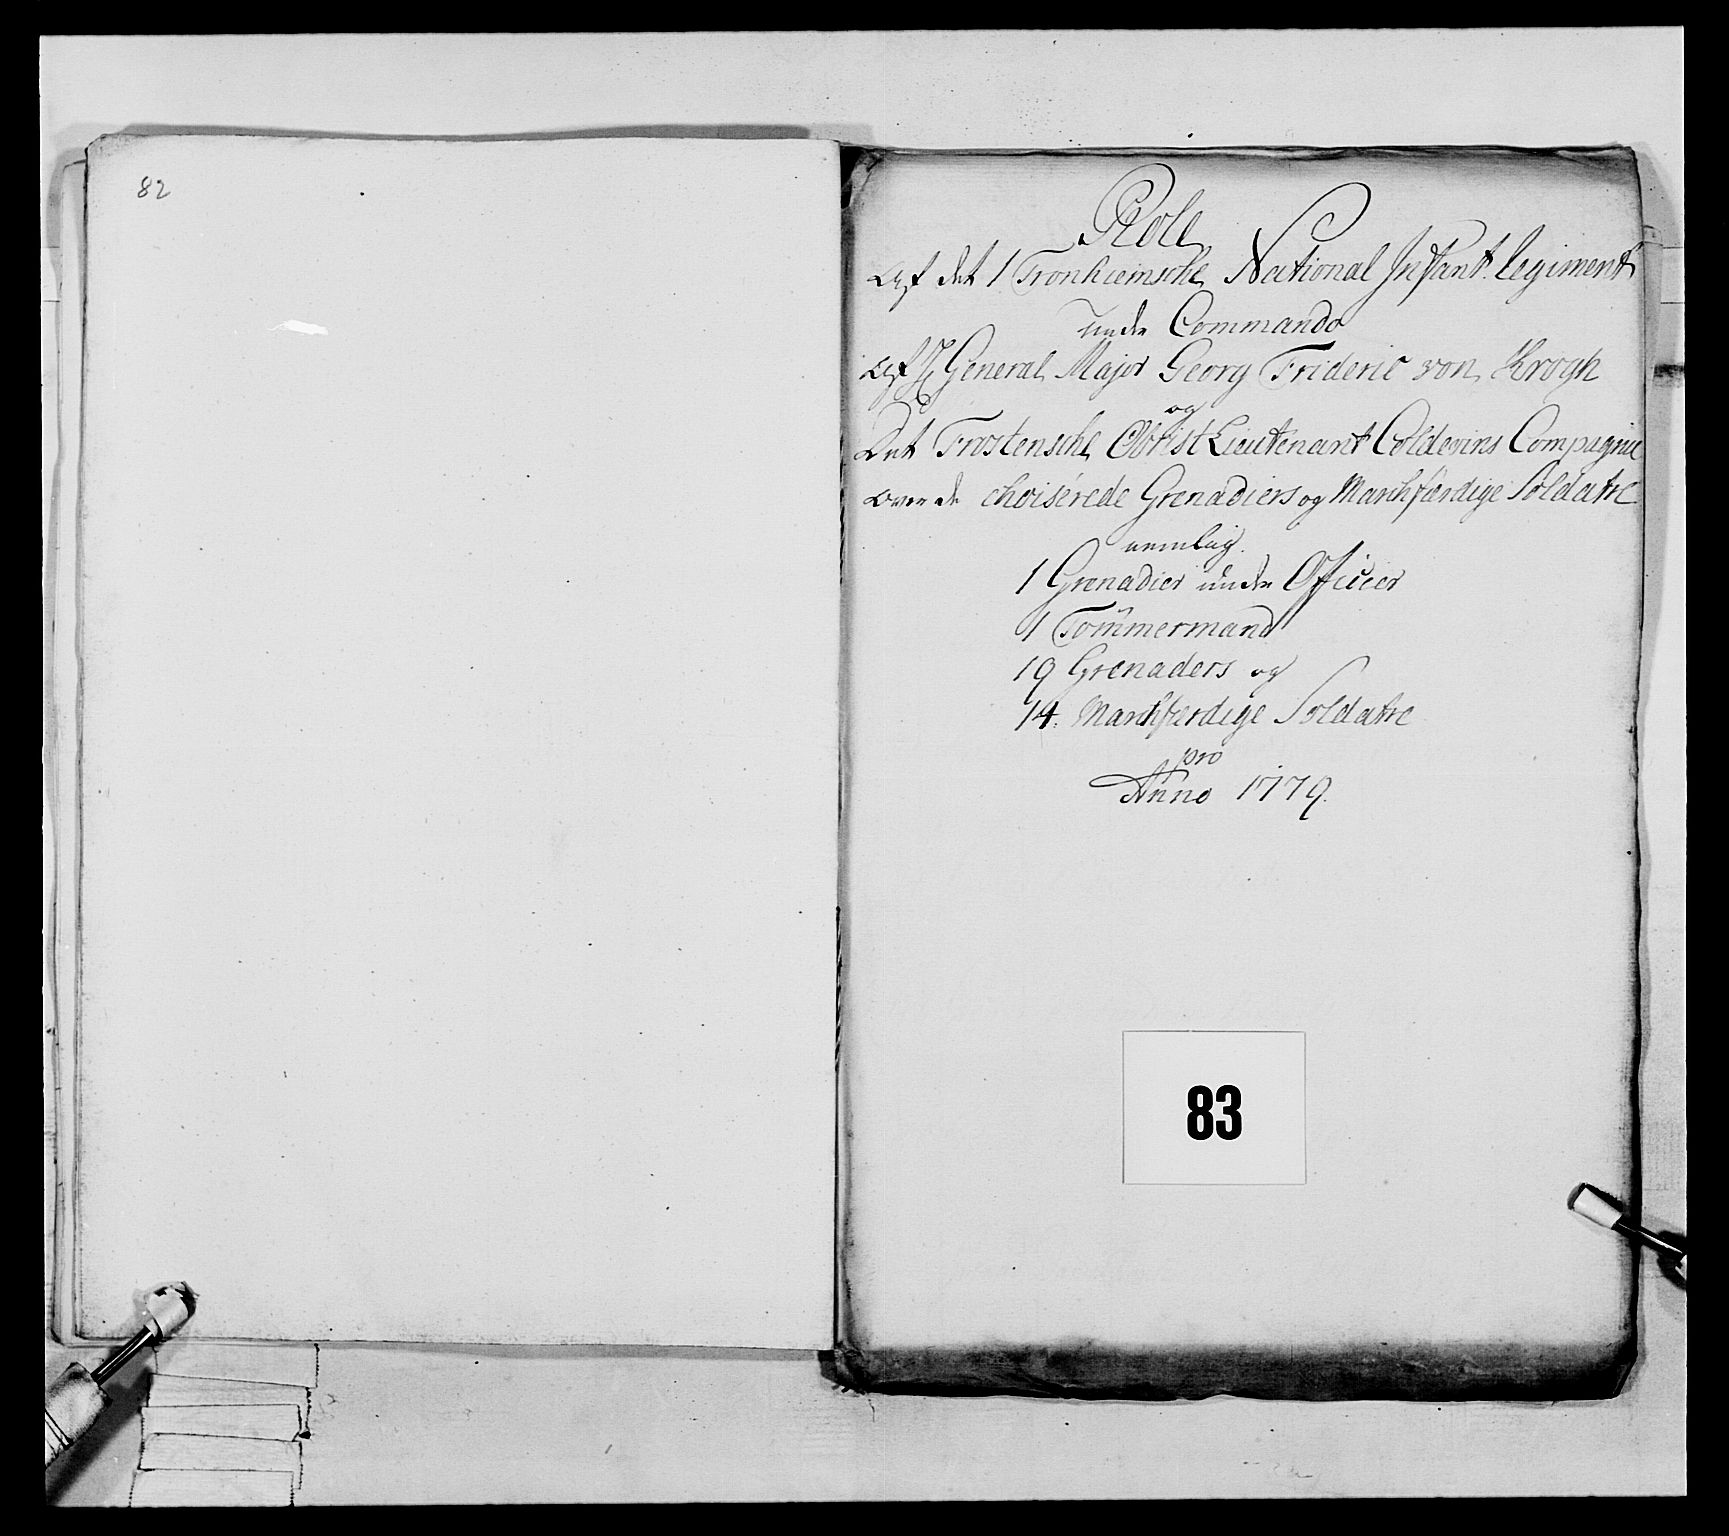 82
Rolle
Af det 1 Tronhiemsche National Infant. Regiment
under Commando
af H General Major Georg Frideric von Krogh
og
Det Frostensche Obrist Lieutenant Coldevins Compagnie
over de choiserede Grenadiers og Marchfærdige Soldatre
nemlig.
1 Grenadier under Officer
1 Tömmermand
19 Grenaders og
14. Marchfærdige Soldatre
pro
Anno 1779.
83